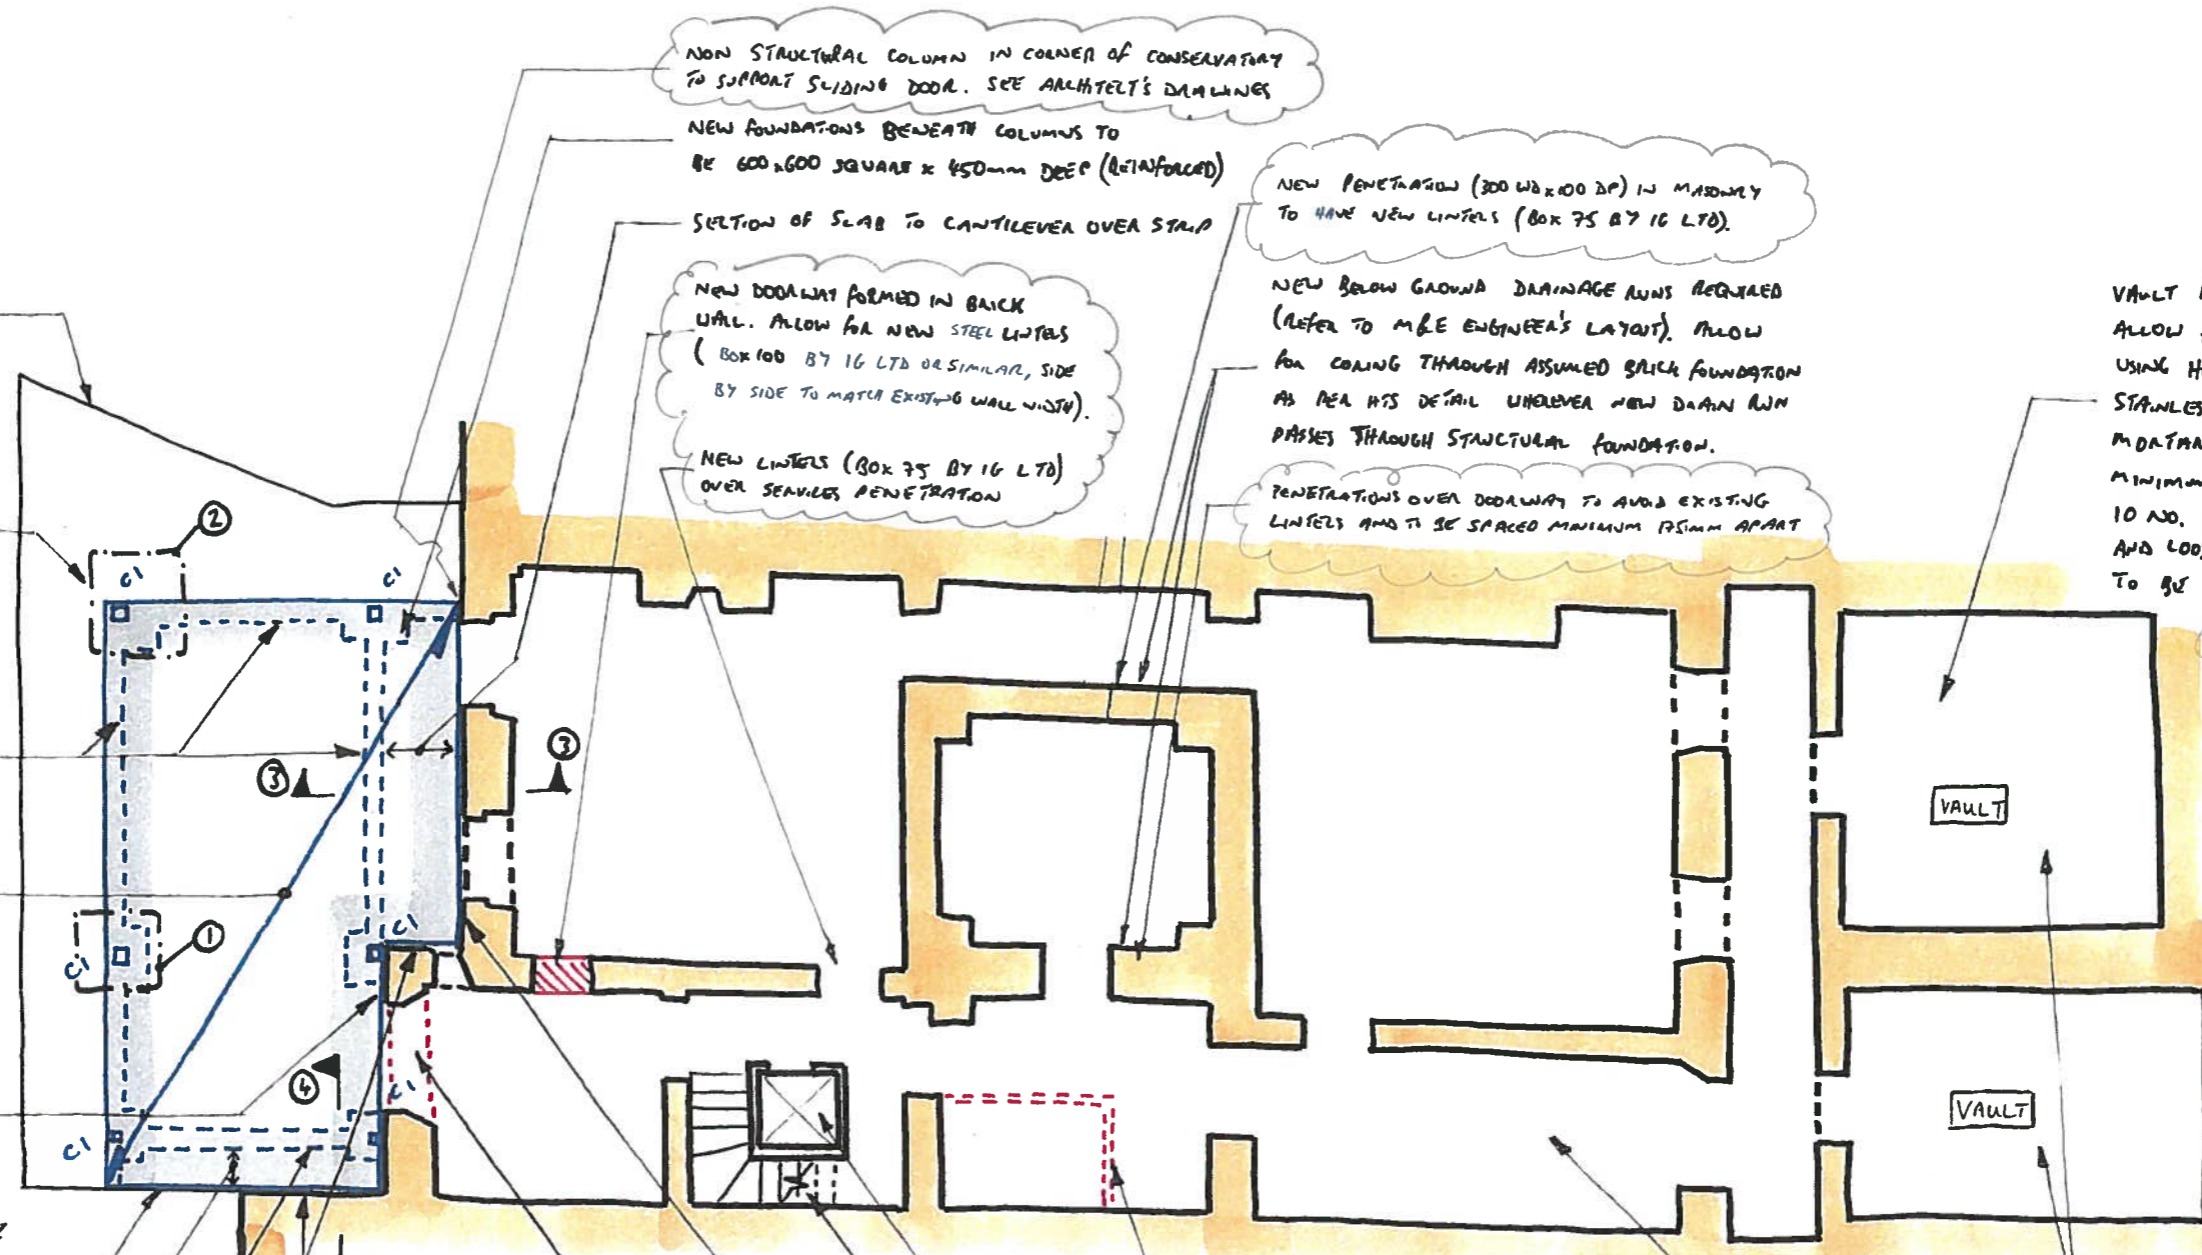 NON STRUCTURAL COLUMN IN CORNER OF CONSERVATORY
TO SUPPORT SLIDING DOOR. SEE ARCHITECT'S DRAWINGS
NEW FOUNDATIONS BENEATH COLUMNS TO
BE 600x600 SQUARE x 450mm DEEP (REINFORCED)
SECTION OF SLAB TO CANTILEVER OVER STRIP
NEW DOORWAY FORMED IN BRICK
WALL. ALLOW FOR NEW STEEL LINTELS
(BOX 100 BY IG LTD OR SIMILAR, SIDE
BY SIDE TO MATCH EXISTING WALL WIDTH).
NEW LINTELS (BOX 75 BY IG LTD)
OVER SERVICES PENETRATION
NEW PENETRATION (300 WD x 100 DP) IN MASONRY
TO HAVE NEW LINTELS (BOX 75 BY IG LTD).
NEW BELOW GROUND DRAINAGE RUNS REQUIRED
(REFER TO M&E ENGINEER'S LAYOUT). ALLOW
FOR CORING THROUGH ASSUMED BRICK FOUNDATION
AS PER HTS DETAIL WHEREVER NEW DRAIN RUN
PASSES THROUGH STRUCTURAL FOUNDATION.
PENETRATIONS OVER DOORWAY TO AVOID EXISTING
LINTELS AND TO BE SPACED MINIMUM 175mm APART
VAULT
ALLOW
USING
STAINLES
MORTAR
MINIMUM
10 NO.
AND
TO BE
2
C1
C1
3
3
VAULT
C1
1
C1
4
C1
C1
VAULT